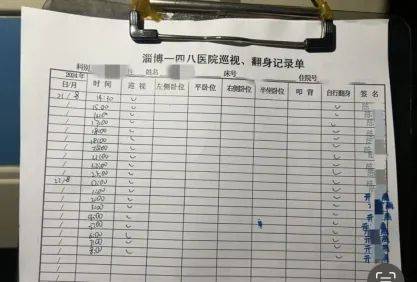 淄博一四八医院巡视、翻身记录单
科别 姓名 床号 住院号
2024年 日/月 时间 巡视 左侧卧位 平卧位 右侧卧位 半坐卧位 叩背 自行翻身 签名
21/8 14:30 ✓ ✓ 陈
15:00 ✓ ✓ 陈
16:00 ✓ ✓ 陈
17:00 ✓ ✓ 陈
18:00 ✓ ✓ 陈
19:00 ✓ ✓ 陈
20:00 ✓ ✓ 陈
21:00 ✓ ✓ 陈
22:00 ✓ ✓ 陈
23:00 ✓ ✓ 陈
22/8 ✓ ✓
1:00 ✓ ✓
2:00 ✓ ✓
3:00 ✓ ✓
4:00 ✓ ✓
5:00 ✓ ✓
6:00 ✓ ✓
7:00 ✓ ✓
8:00 ✓ ✓